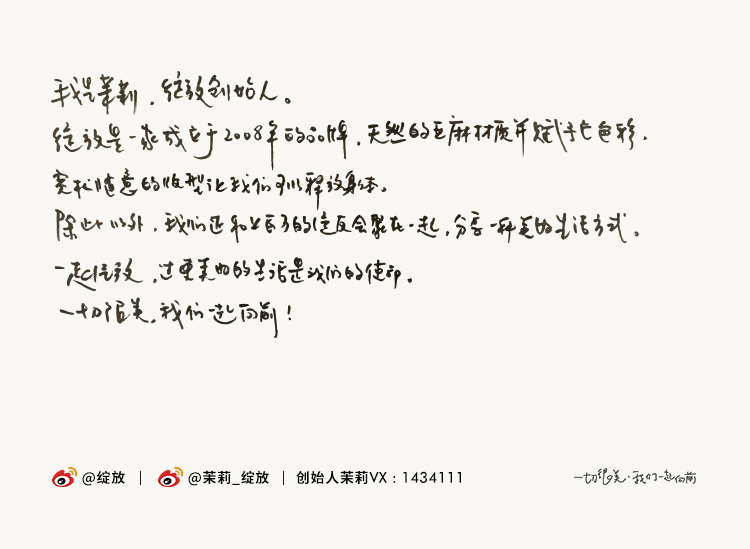 我是茉莉，绽放创始人。
绽放是一家成立于2008年的品牌，天然的亚麻材质并赋予它色彩，
宽松随意的版型让我们可以释放身体。
除此以外，我们还和上百万的绽友会聚在一起，分享一种美的生活方式。
一起绽放，过更美的的生活是我们的使命。
一切很美，我们一起向前！
@绽放 | @茉莉_绽放 | 创始人茉莉VX：1434111
一切很美·我们一起向前